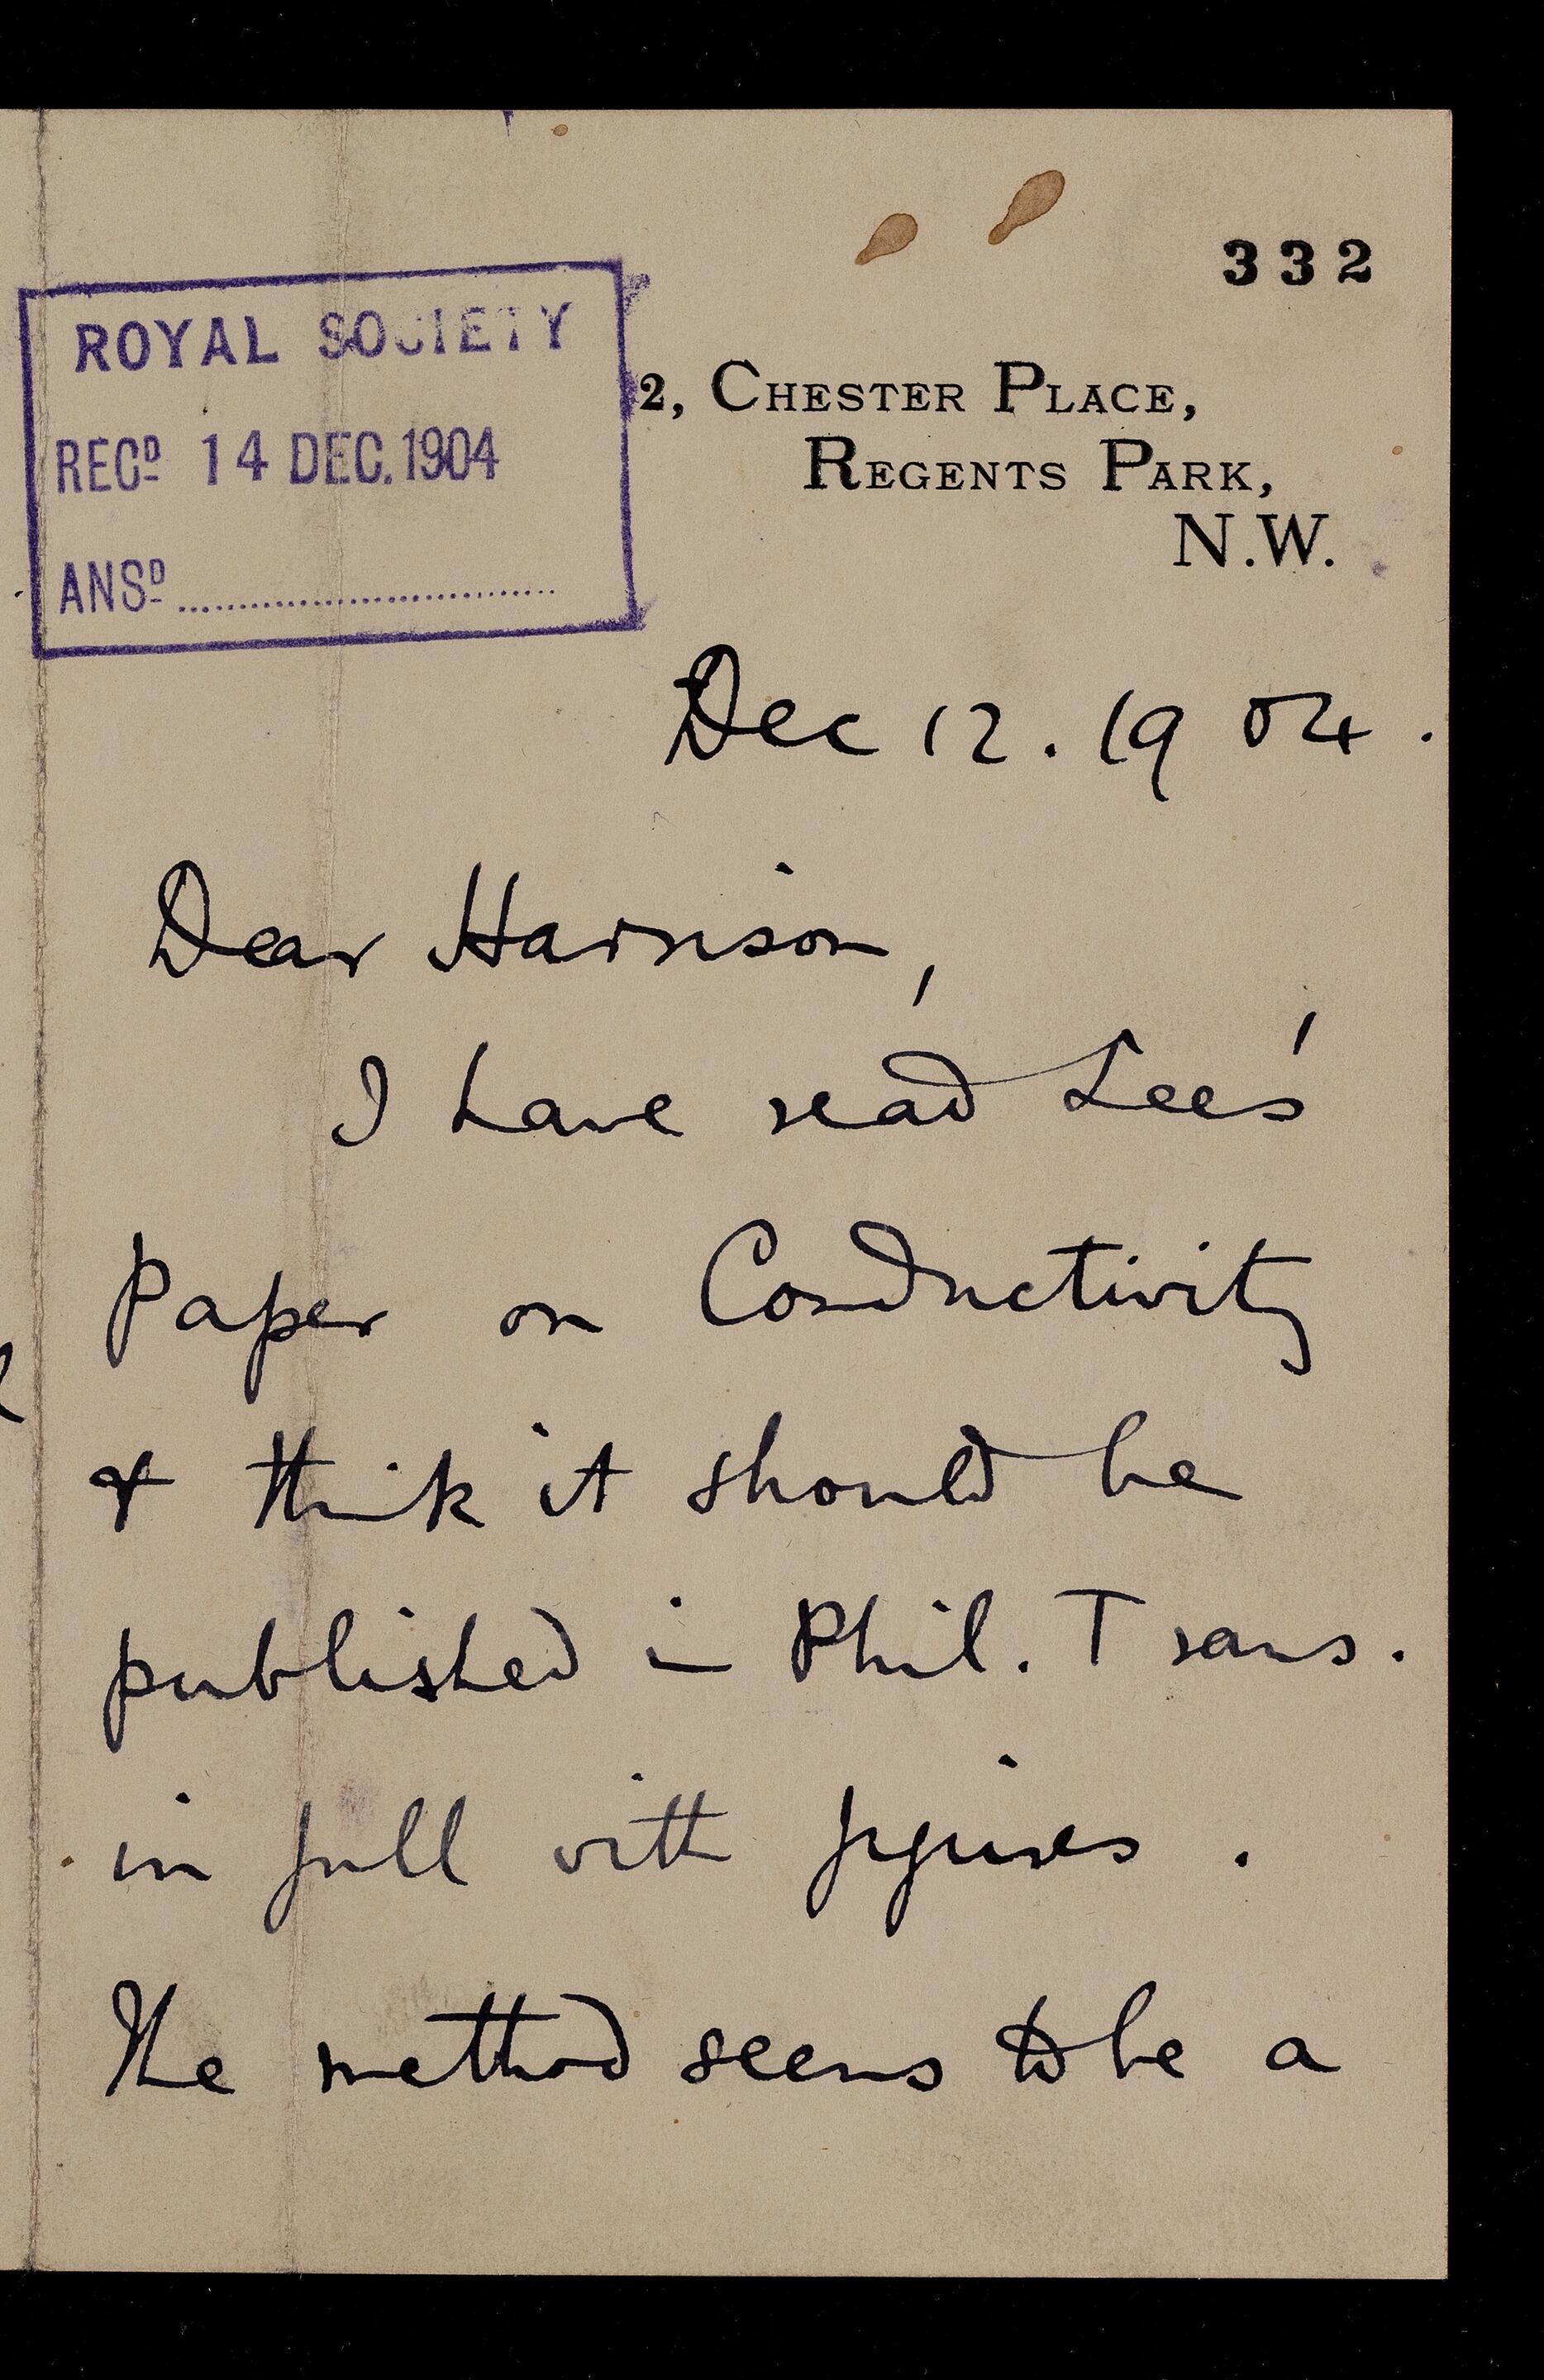 332
ROYAL SOCIETY
RECD 14 DEC. 1904
ANSD
2, CHESTER PLACE,
REGENTS PARK,
N.W.
Dec 12. 1904.
Dear Harrison,
I have read Lees'
Paper on Conductivity
& think it should be
published in Phil. Trans.
in full with figures.
The method seems to be a